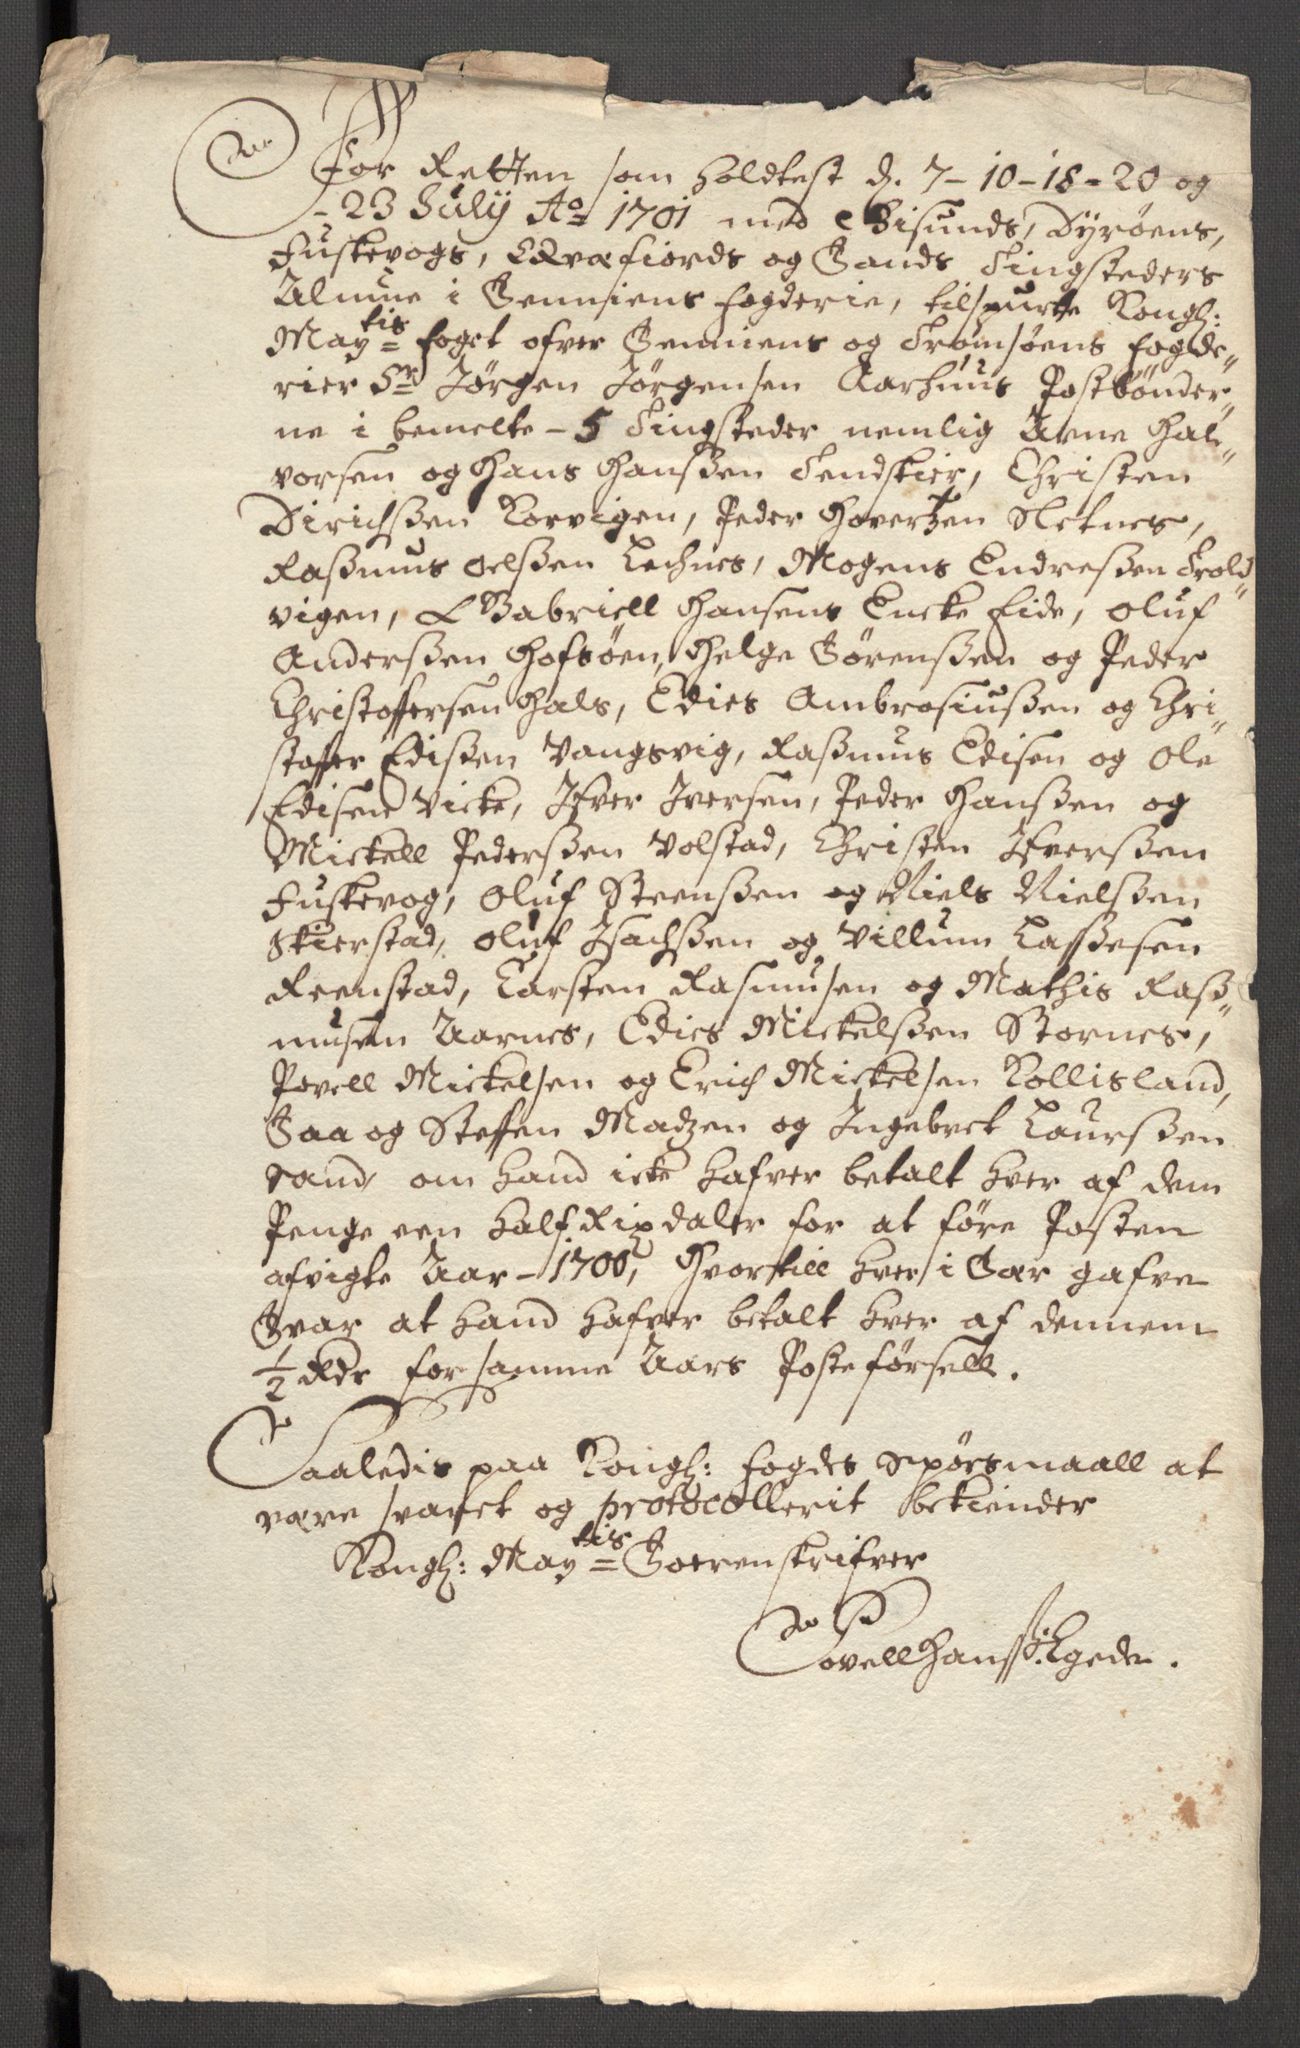 For Retten som holdtest d. 7-10-18-20 og
-23 Julij Ao 1701 med Gisunds, Dyrøens,
Fuskevogs, Qvæfiords og Sands Tingsteders
Almue i Senniens fogderie, tilspurte Kongl:
Maytis foget ofver Senniens og Tromsøens fogde„
rier Sr Jørgen Jørgensen Aarhuus Postbønder„
ne i bemelte - 5 Tingsteder nemlig Arne Hal„
vorsen og Hans Hanssen Tendskier, Christen
Dirichssen Korvigen, Peder Hovertzen Sletnes,
Rassmus Oelssen Lechnes, Mogens Endressen Trold„
vigen, Gabriell Hansens Encke Eide, Oluf
Anderssen Hofsøen, Helge Sørenssen og Peder
Christoffersen Hals, Edies Ambrosiussen og Chri„
stoffer Edissen Vangsvig, Rassmus Edisen og Ole
Edisen Vicke, Ifver Iversen, Peder Hanssen og
Mickell Pederssen Volstad, Christen Ifverssen
Fuskevog, Oluf Steenssen og Niels Nielssen
Skierstad, Oluf Isachssen og Villum Lassesen
Reenstad, Carsten Rasmusen og Mathis Rass„
musen Aarnes, Edies Mickelssen Stornes,
Povell Mickelsen og Erich Mickelsen Kollisland,
Saa og Steffen Madzen og Ingebret Laurssen
Sand, om hand icke hafver betalt hver af dem
Penge een half Rixdaler for at føre Posten
afvigte Aar - 1700, Hvortill hver i Sær gafve
Svar at hand hafver betalt hver af dennem
1/2 Rdr for samme Aars Posteførsell.
Saaledis paa Kongl: fogdes Spørsmaall at
være svaret og protocollerit bekiender
Kongl: Maytis Soerenskrifver
Povell Hanss: Egede.